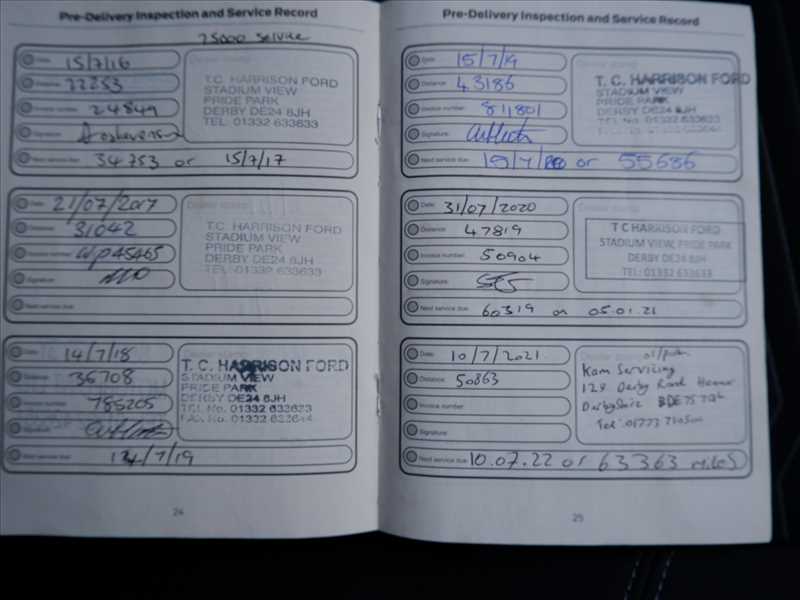 Pre-Delivery Inspection and Service Record
25000 Service
Date: 15/7/16
Distance: 22253
Invoice number: 24849
Signature:
T.C. HARRISON FORD
STADIUM VIEW
PRIDE PARK
DERBY DE24 8JH
TEL: 01332 633633
Next service due: 34753 or 15/7/17
Date: 21/07/2017
Distance: 31042
Invoice number: WP45465
Signature:
T.C. HARRISON FORD
STADIUM VIEW
PRIDE PARK
DERBY DE24 8JH
TEL: 01332 633633
Next service due:
Date: 14/7/18
Distance: 36708
785205
Signature:
T. C. HARRISON FORD
STADIUM VIEW
PRIDE PARK
DERBY DE24 8JH
TEL No. 01332
FAX No. 01332
Next service due: 14/7/19
24
Pre-Delivery Inspection and Service Record
Date: 15/7/19
Distance: 43186
Invoice number: 811801
Signature:
T. C. HARRISON FORD
STADIUM VIEW
PRIDE PARK
DERBY DE24 8JH
TEL No. 01332
Next service due: or 55686
Date: 31/07/2020
Distance: 47819
Invoice number: 50904
Signature:
T C HARRISON FORD
STADIUM VIEW, PRIDE PARK
DERBY DE24 8JH
TEL: 01332 633633
Next service due: 60319 or 05.01.21
Date: 10/7/2021
Distance: 50863
Invoice number:
Signature:
Kam Servicing
Derby Road Heanor
Derbyshire
Tel: 01773
Next service due: 10.07.22 or 63363 miles
25